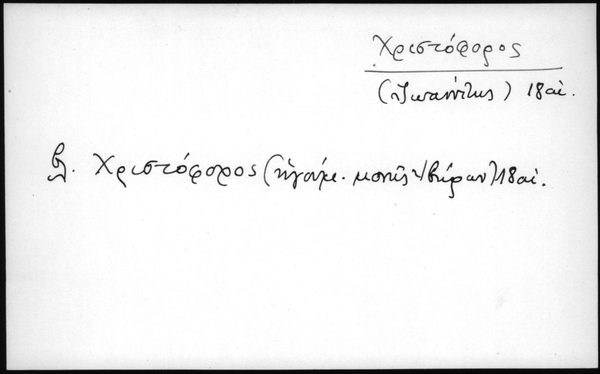 Χριστόφορος
(Ἰωαννίτης) 18 αἰ.
βλ. Χριστόφορος (ἡγούμ. μονῆς Ἰβήρων) 18 αἰ.